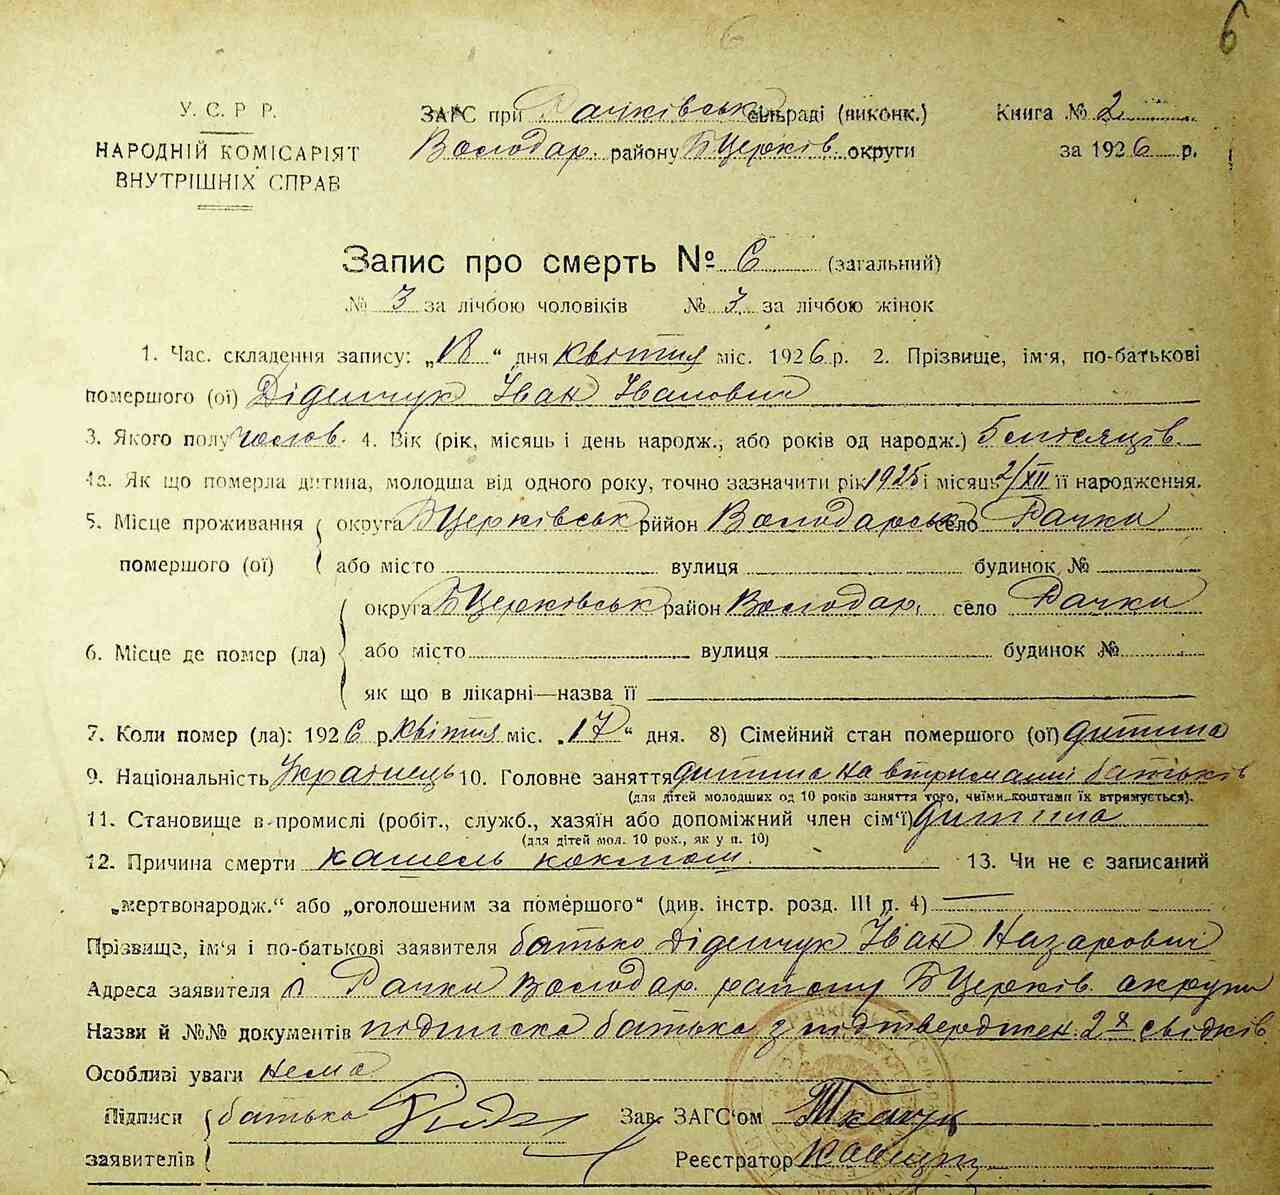 6
У. С. Р. Р.
НАРОДНІЙ КОМІСАРІЯТ
ВНУТРІШНІХ СПРАВ
ЗАГС при Рачківськ сільраді (виконк.)
Володар. району БЦерків. округи
Книга № 2
за 1926 р.
Запис про смерть № 6 (загальний)
№ 3 за лічбою чоловіків № 3 за лічбою жінок
1. Час. складення запису: „18" дня квітня міс. 1926 р. 2. Прізвище, ім'я, по-батькові
помершого (ої) Діденчук Іван Іванович
3. Якого полу чолов. 4. Вік (рік, місяць і день народж., або років од народж.) 5 місяців
4а. Як що померла дитина, молодша від одного року, точно зазначити рік 1925 і місяць 2/XII її народження.
5. Місце проживання округа БЦерківськ рийон Володарськ село Рачки
помершого (ої) або місто вулиця будинок №
округа БЦерківськ район Володар. село Рачки
6. Місце де помер (ла) або місто вулиця будинок №
як що в лікарні—назва її
7. Коли помер (ла): 1926 р. квітня міс. „17" дня. 8) Сімейний стан помершого (ої) дитина
9. Національність Українець 10. Головне заняття дитина на втриманні батьків
(для дітей молодших од 10 років заняття того, чиїми коштами їх втримується).
11. Становище в промислі (робіт., служб., хазяїн або допоміжний член сім'ї) дитина
(для дітей мол. 10 рок., як у п. 10)
12. Причина смерти кашель коклюш. 13. Чи не є записаний
„мертвонародж." або „оголошеним за помёршого" (див. інстр. розд. III п. 4) —
Прізвище, ім'я і по-батькові заявителя батько Діденчук Іван Назарович
Адреса заявителя с Рачки Володар. району БЦерків. округи
Назви й №№ документів підписка батька з підтверджен. 2х свідків
Особливі уваги нема
Підписи батько Зав. ЗАГС'ом Ткачук
заявителів Реєстратор